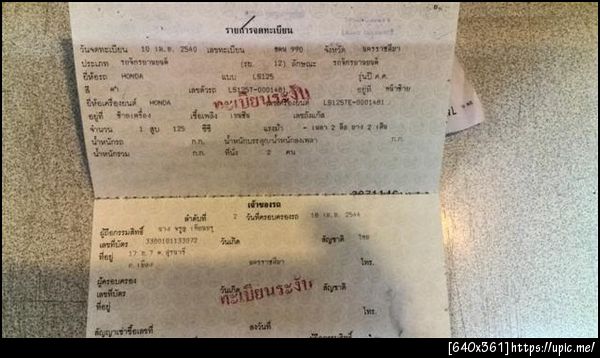 รายการจดทะเบียน
วันจดทะเบียน 10 เม.ย. 2540 เลขทะเบียน 990 จังหวัด นครราชสีมา
ประเภท รถจักรยานยนต์ (รย. 12) ลักษณะ รถจักรยานยนต์
ยี่ห้อรถ HONDA แบบ LS125 รุ่นปี ค.ศ.
สี ดำ เลขตัวรถ LS125T-0001481 อยู่ที่ หน้าซ้าย
ยี่ห้อเครื่องยนต์ HONDA เลขเครื่องยนต์ LS125TE-0001481
ทะเบียนระงับ
อยู่ที่ ข้างเครื่อง เชื้อเพลิง เบนซิน เลขถังแก๊ส
จำนวน 1 สูบ 125 ซีซี แรงม้า - เพลา 2 ล้อ ยาง 2 เส้น
น้ำหนักรถ ก.ก. น้ำหนักบรรทุก/น้ำหนักลงเพลา ก.ก.
น้ำหนักรวม ก.ก. ที่นั่ง 2 คน
เจ้าของรถ
ลำดับที่ 2 วันที่ครอบครองรถ 10 เม.ย. 2544
ผู้ถือกรรมสิทธิ์ นาง
เลขที่บัตร 3300101133072 วันเกิด สัญชาติ ไทย
ที่อยู่ 17 ถ. สุรนารี
อ.เมือง นครราชสีมา โทร.
ผู้ครอบครอง
เลขที่บัตร วันเกิด สัญชาติ
ทะเบียนระงับ
ที่อยู่
โทร.
สัญญาเช่าซื้อเลขที่ ลงวันที่
[640x361]https://upic.me/